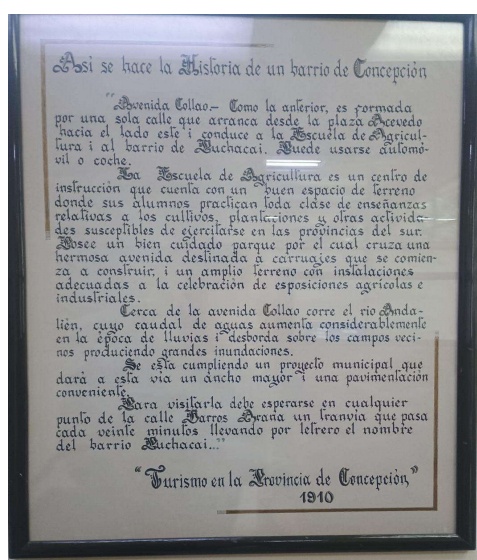 Asi se hace la Historia de un barrio de Concepción
"Avenida Collao.- Como la anterior, es formada
por una sola calle que arranca desde la plaza Acevedo
hacia el lado este i conduce a la Escuela de Agricul-
tura i al barrio de Puchacai. Puede usarse automó-
vil o coche.
La Escuela de Agricultura es un centro de
instrucción que cuenta con un buen espacio de terreno
donde sus alumnos practican toda clase de enseñanzas
relativas a los cultivos, plantaciones y otras activida-
des susceptibles de ejercitarse en las provincias del sur.
Posee un bien cuidado parque por el cual cruza una
hermosa avenida destinada a carruajes que se comien-
za a construir, i un amplio terreno con instalaciones
adecuadas a la celebración de esposiciones agrícolas e
industriales.
Cerca de la avenida Collao corre el rio Anda-
lién, cuyo caudal de aguas aumenta considerablemente
en la época de lluvias i desborda sobre los campos veci-
nos produciendo grandes inundaciones.
Se está cumpliendo un proyecto municipal que
dará a esta vía un ancho mayor i una pavimentación
conveniente.
Para visitarla debe esperarse en cualquier
punto de la calle Barros Arana un tranvía que pasa
cada veinte minutos llevando por letrero el nombre
del barrio Puchacai..."
"Turismo en la Provincia de Concepción"
1910